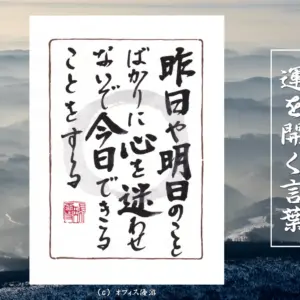 昨日や明日のこと
ばかりに心を迷わせ
ないで今日できる
ことをする
運を開く言葉
(c) オフィス海沼